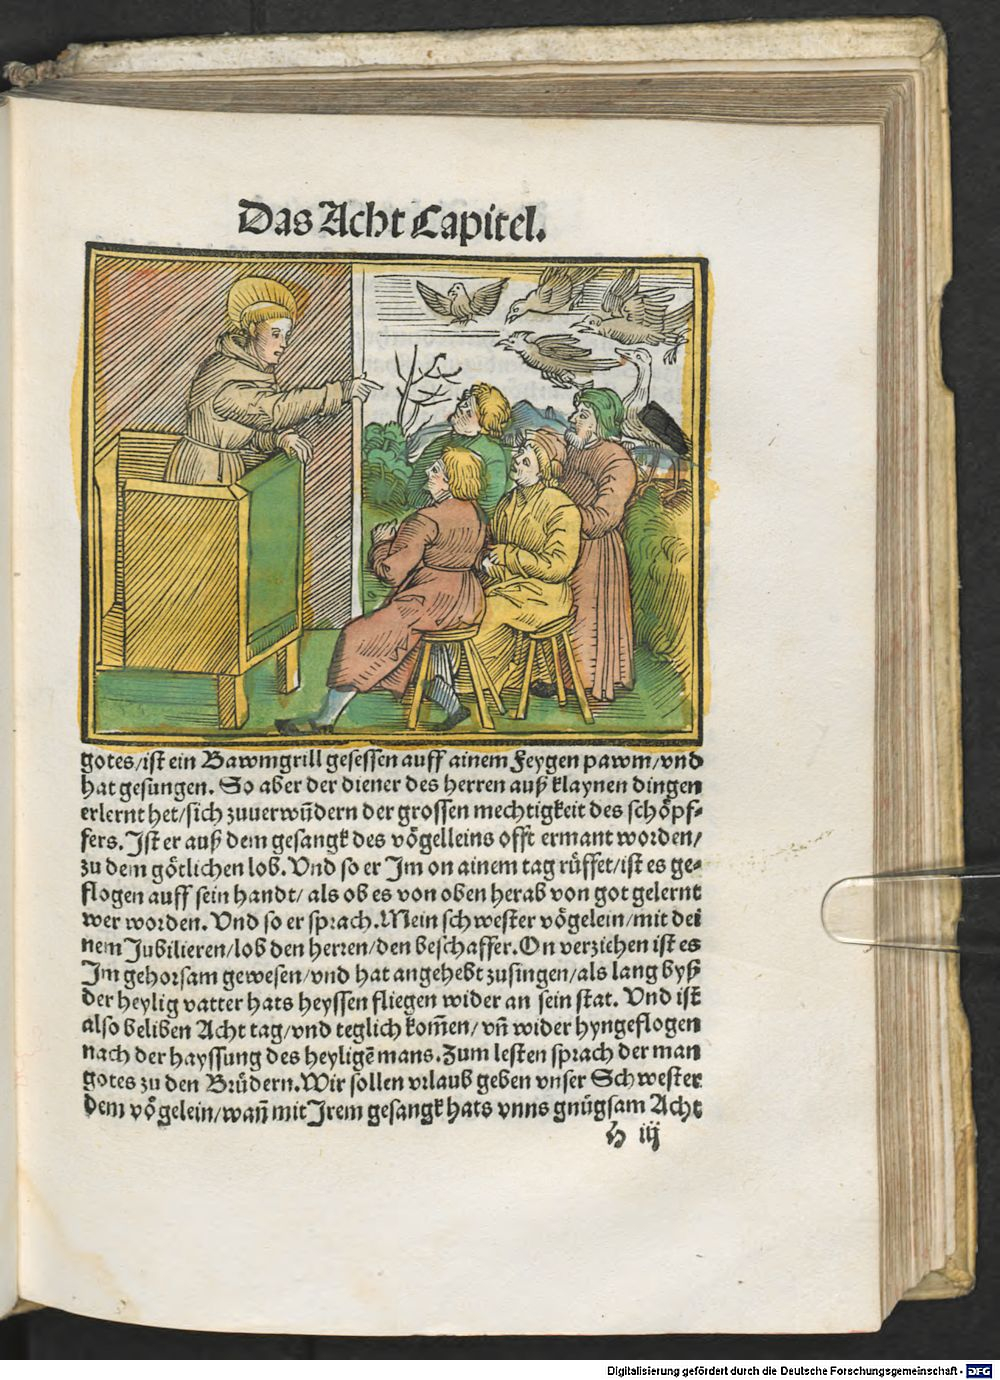 Das Acht Capitel.
gotes/ist ein Bawmgrill gesessen auff ainem Feygen pawm/vnd
hat gesungen. So aber der diener des herren auß klaynen dingen
erlernt het/sich zuuerwũdern der grossen mechtigkeit des schöpf⸗
fers. Ist er auß dem gesangk des vögelleins offt ermant worden/
zu dem götlichen lob. Vnd so er Im on ainem tag rüffet/ist es ge⸗
flogen auff sein handt/ als ob es von oben herab von got gelernt
wer worden. Vnd so er sprach. Mein schwester vögelein/mit dei
nem Jubilieren/lob den herren/den beschaffer. On verziehen ist es
Im gehorsam gewesen/vnd hat angehebt zusingen/als lang byß
der heylig vatter hats heyssen fliegen wider an sein stat. Vnd ist
also beliben Acht tag/vnd teglich kom̃en/ vñ wider hyngeflogen
nach der hayssung des heyligẽ mans. Zum lesten sprach der man
gotes zu den Brüdern. Wir sollen vrlaub geben vnser Schwester
dem vögelein/wañ mit Irem gesangk hats vnns gnügsam Acht
h iij
Digitalisierung gefördert durch die Deutsche Forschungsgemeinschaft - DFG